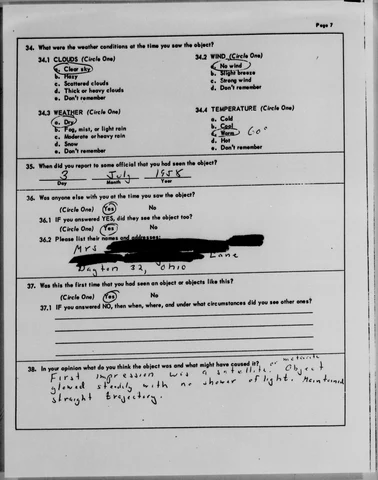 Page 7
34. What were the weather conditions at the time you saw the object?
34.1 CLOUDS (Circle One)
a. Clear sky
b. Hazy
c. Scattered clouds
d. Thick or heavy clouds
e. Don't remember
34.2 WIND (Circle One)
a. No wind
b. Slight breeze
c. Strong wind
d. Don't remember
34.3 WEATHER (Circle One)
a. Dry
b. Fog, mist, or light rain
c. Moderate or heavy rain
d. Snow
e. Don't remember
34.4 TEMPERATURE (Circle One)
a. Cold
b. Cool
c. Warm 60°
d. Hot
e. Don't remember
35. When did you report to some official that you had seen the object?
3 July 1958
Day Month Year
36. Was anyone else with you at the time you saw the object?
(Circle One) Yes No
36.1 IF you answered YES, did they see the object too?
(Circle One) Yes No
36.2 Please list their names and addresses:
Mrs
Lane
Dayton 32, Ohio
37. Was this the first time that you had seen an object or objects like this?
(Circle One) Yes No
37.1 IF you answered NO, then when, where, and under what circumstances did you see other ones?
38. In your opinion what do you think the object was and what might have caused it?
First impression was a satellite or meteorite. Object
glowed steadily with no shower of light. Maintained
straight trajectory.